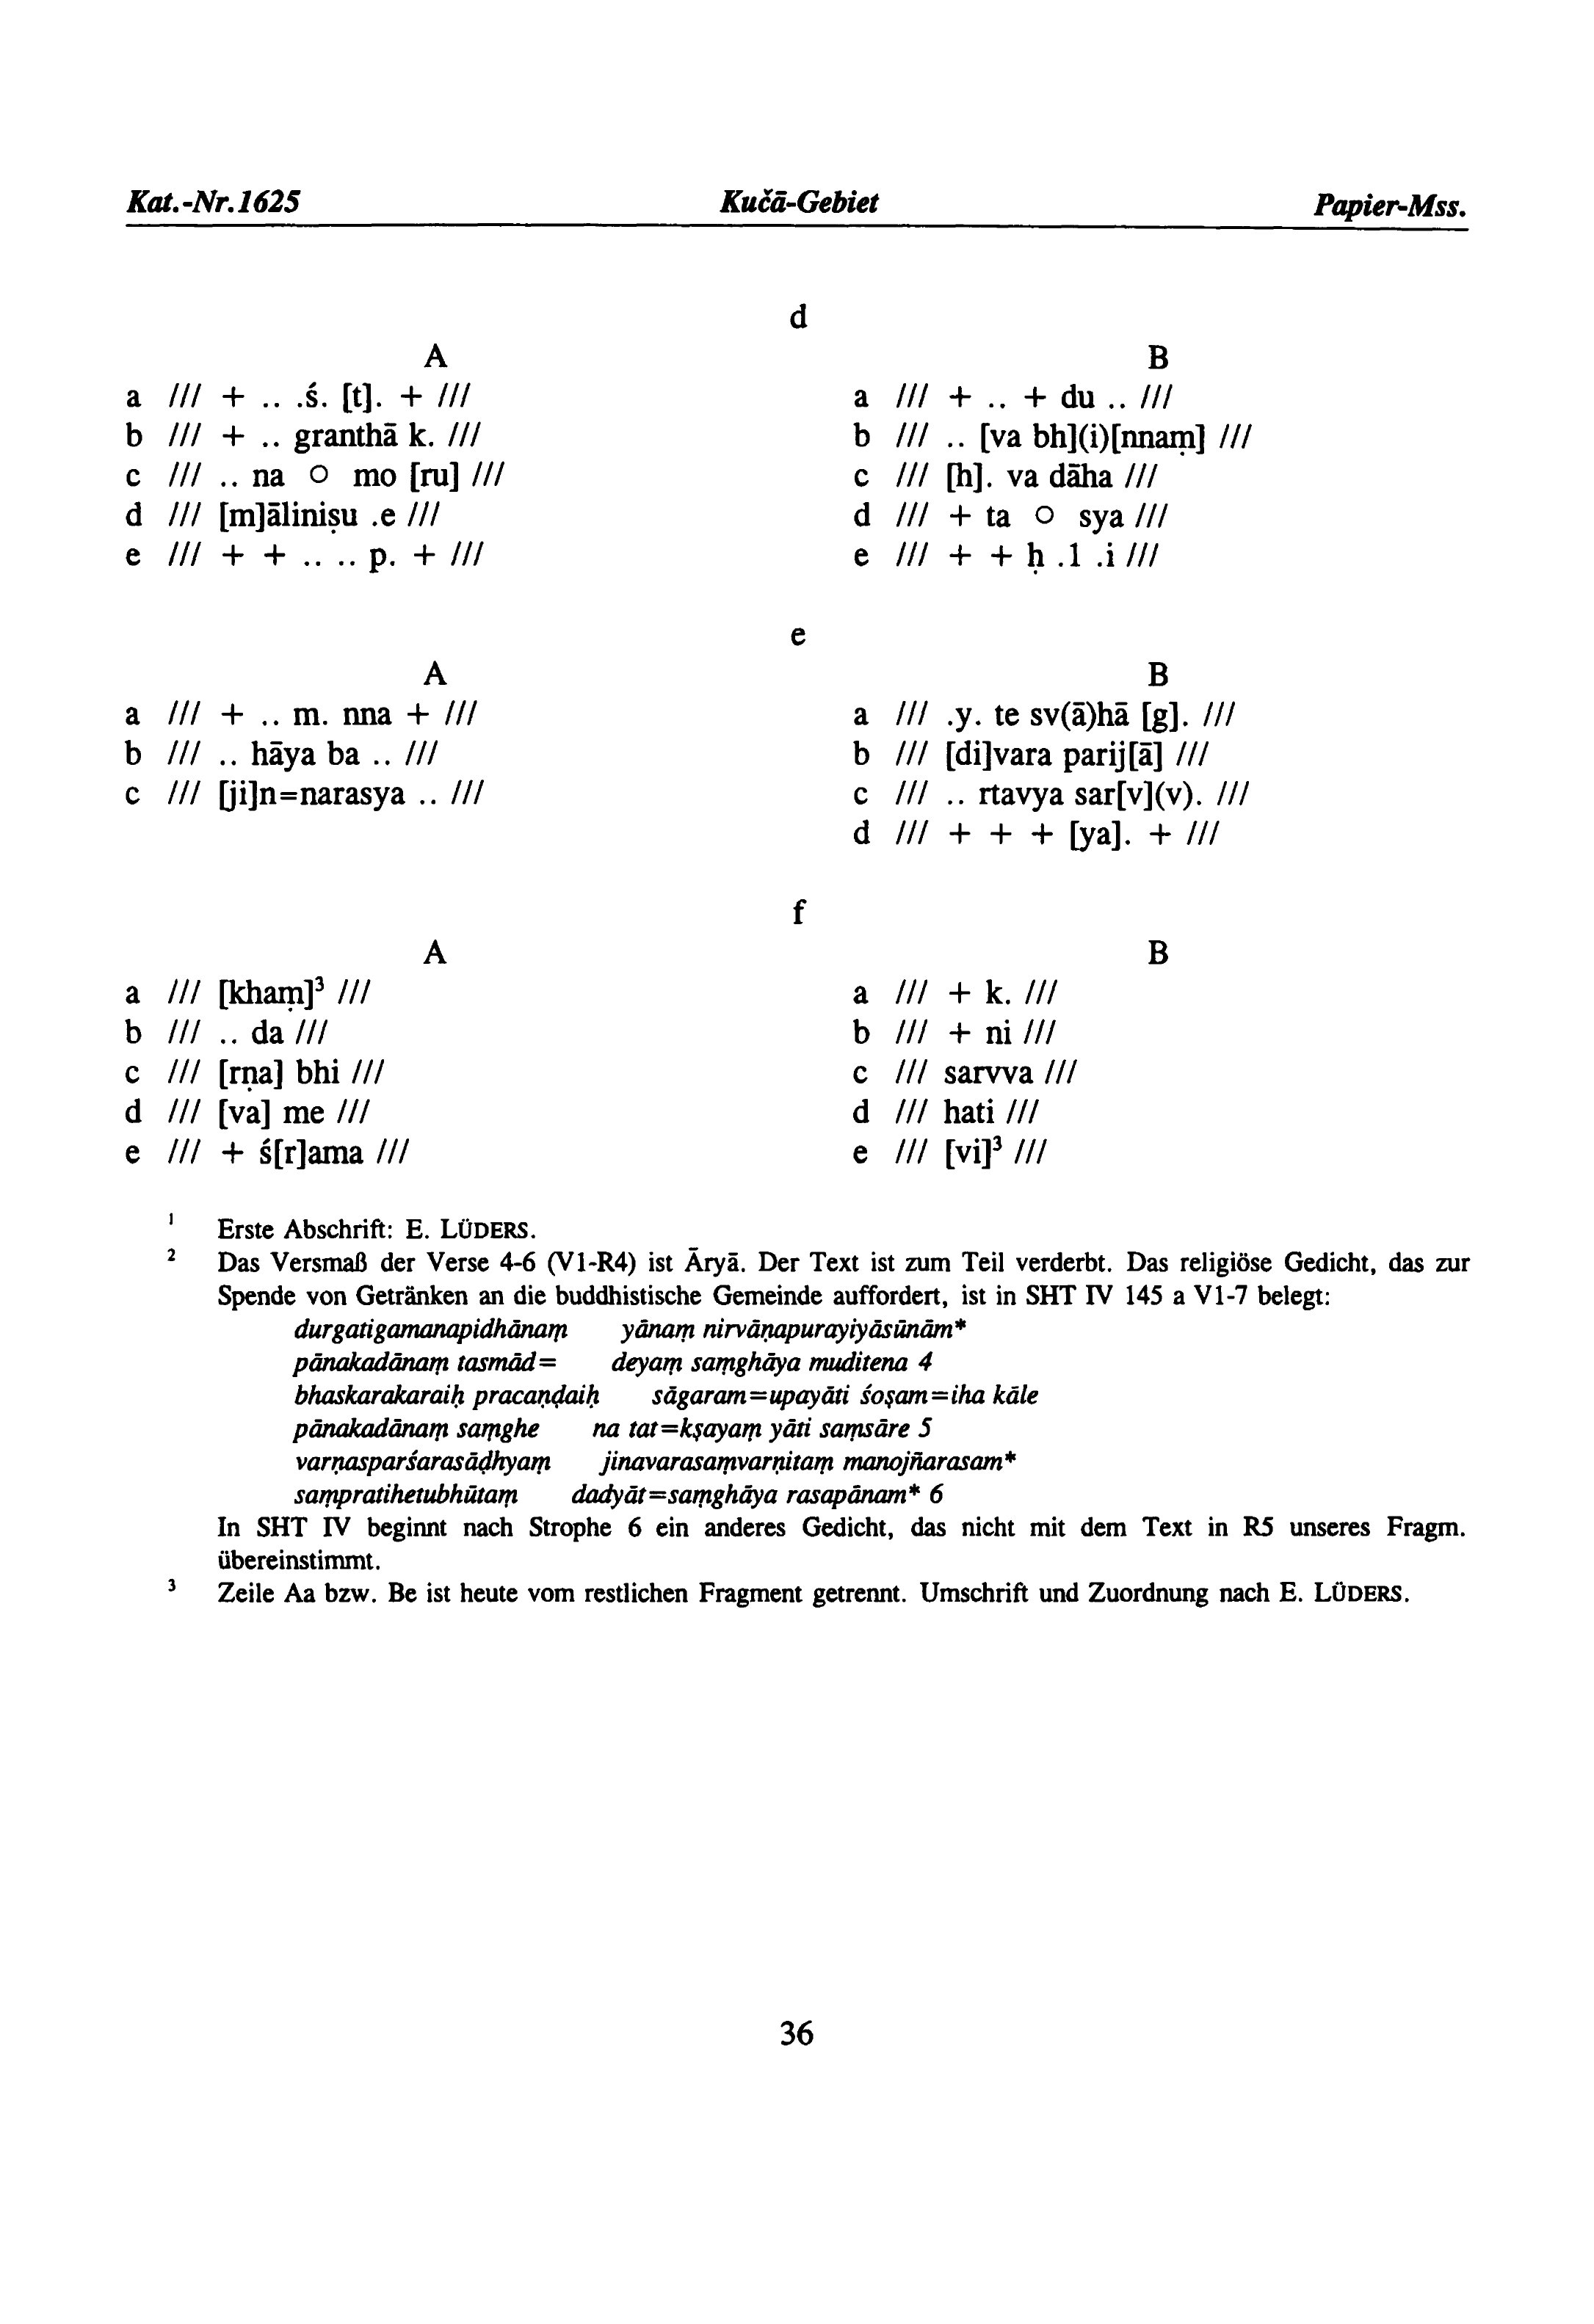 Kat.-Nr.1625 Kučā-Gebiet Papier-Mss.
d
A
a /// + .. .ś. [t]. + ///
b /// + .. granthā k. ///
c /// .. na ○ mo [ru] ///
d /// [m]āliniṣu .e ///
e /// + + .. .. p. + ///
B
a /// + .. + du .. ///
b /// .. [va bh](i)[nnaṃ] ///
c /// [h]. va dāha ///
d /// + ta ○ sya ///
e /// + + ḥ .l .i ///
e
A
a /// + .. m. nna + ///
b /// .. hāya ba .. ///
c /// [ji]n=narasya .. ///
B
a /// .y. te sv(ā)hā [g]. ///
b /// [di]vara parij[ā] ///
c /// .. rtavya sar[v](v). ///
d /// + + + [ya]. + ///
f
A
a /// [khaṃ]³ ///
b /// .. da ///
c /// [rṇa] bhi ///
d /// [va] me ///
e /// + ś[r]ama ///
B
a /// + k. ///
b /// + ni ///
c /// sarvva ///
d /// hati ///
e /// [vi]³ ///
¹ Erste Abschrift: E. LÜDERS.
² Das Versmaß der Verse 4-6 (V1-R4) ist Āryā. Der Text ist zum Teil verderbt. Das religiöse Gedicht, das zur
Spende von Getränken an die buddhistische Gemeinde auffordert, ist in SHT IV 145 a V1-7 belegt:
durgatigamanapidhānaṃ yānaṃ nirvāṇapurayiyāsūnām*
pānakadānaṃ tasmād= deyaṃ saṃghāya muditena 4
bhaskarakaraiḥ pracaṇḍaiḥ sāgaram=upayāti śoṣam=iha kāle
pānakadānaṃ saṃghe na tat=kṣayaṃ yāti saṃsāre 5
varṇasparśarasāḍhyaṃ jinavarasaṃvarṇitaṃ manojñarasam*
saṃpratihetubhūtaṃ dadyāt=saṃghāya rasapānam* 6
In SHT IV beginnt nach Strophe 6 ein anderes Gedicht, das nicht mit dem Text in R5 unseres Fragm.
übereinstimmt.
³ Zeile Aa bzw. Be ist heute vom restlichen Fragment getrennt. Umschrift und Zuordnung nach E. LÜDERS.
36